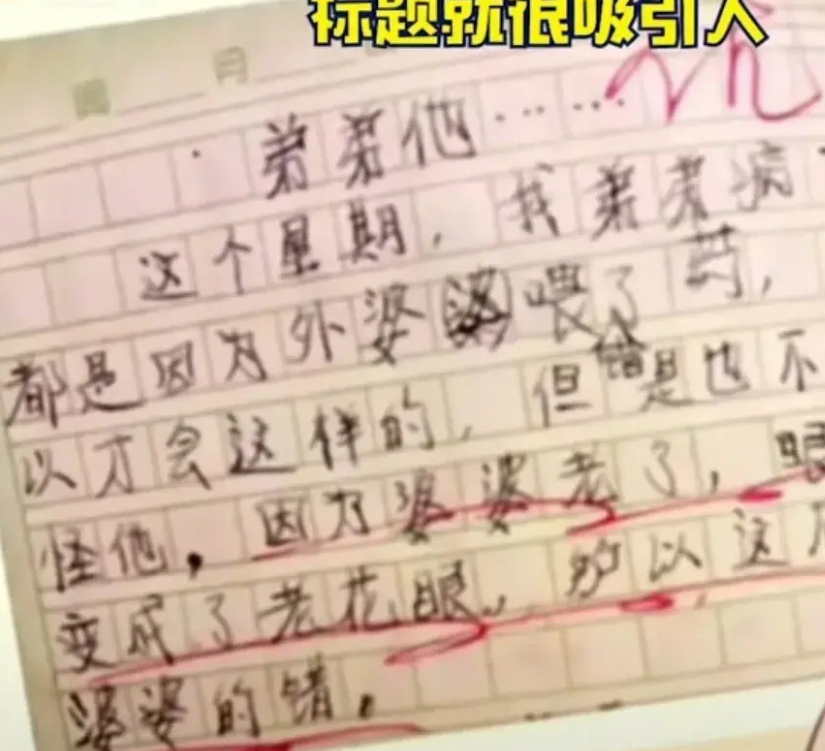 标题就很吸引人
周 月
弟弟他……
这个星期，我弟弟病
都是因为外婆喂了错药，
以才会这样的，但是也不
怪他。因为婆婆老了，眼
变成了老花眼，所以这
婆婆的错。